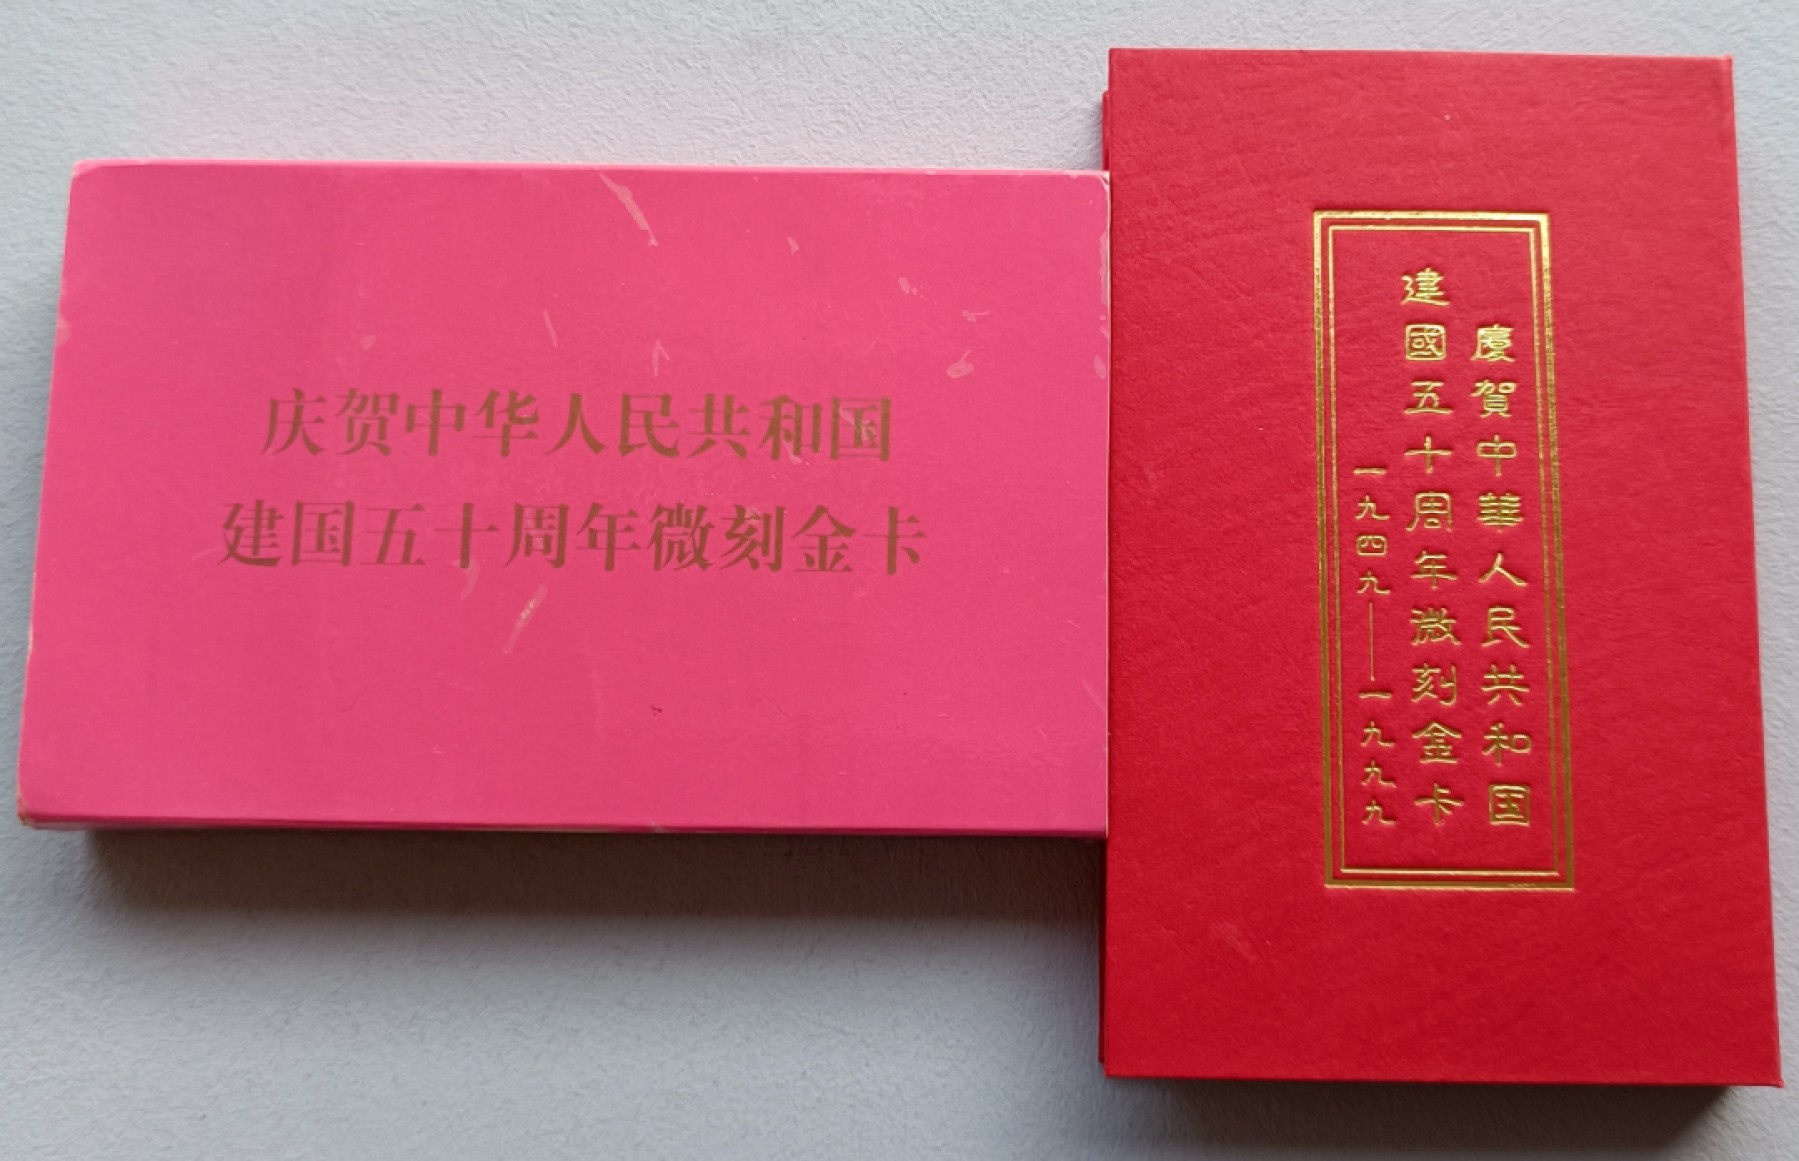 庆贺中华人民共和国
建国五十周年微刻金卡
慶賀中華人民共和国
建國五十周年微刻金卡
一九四九——一九九九